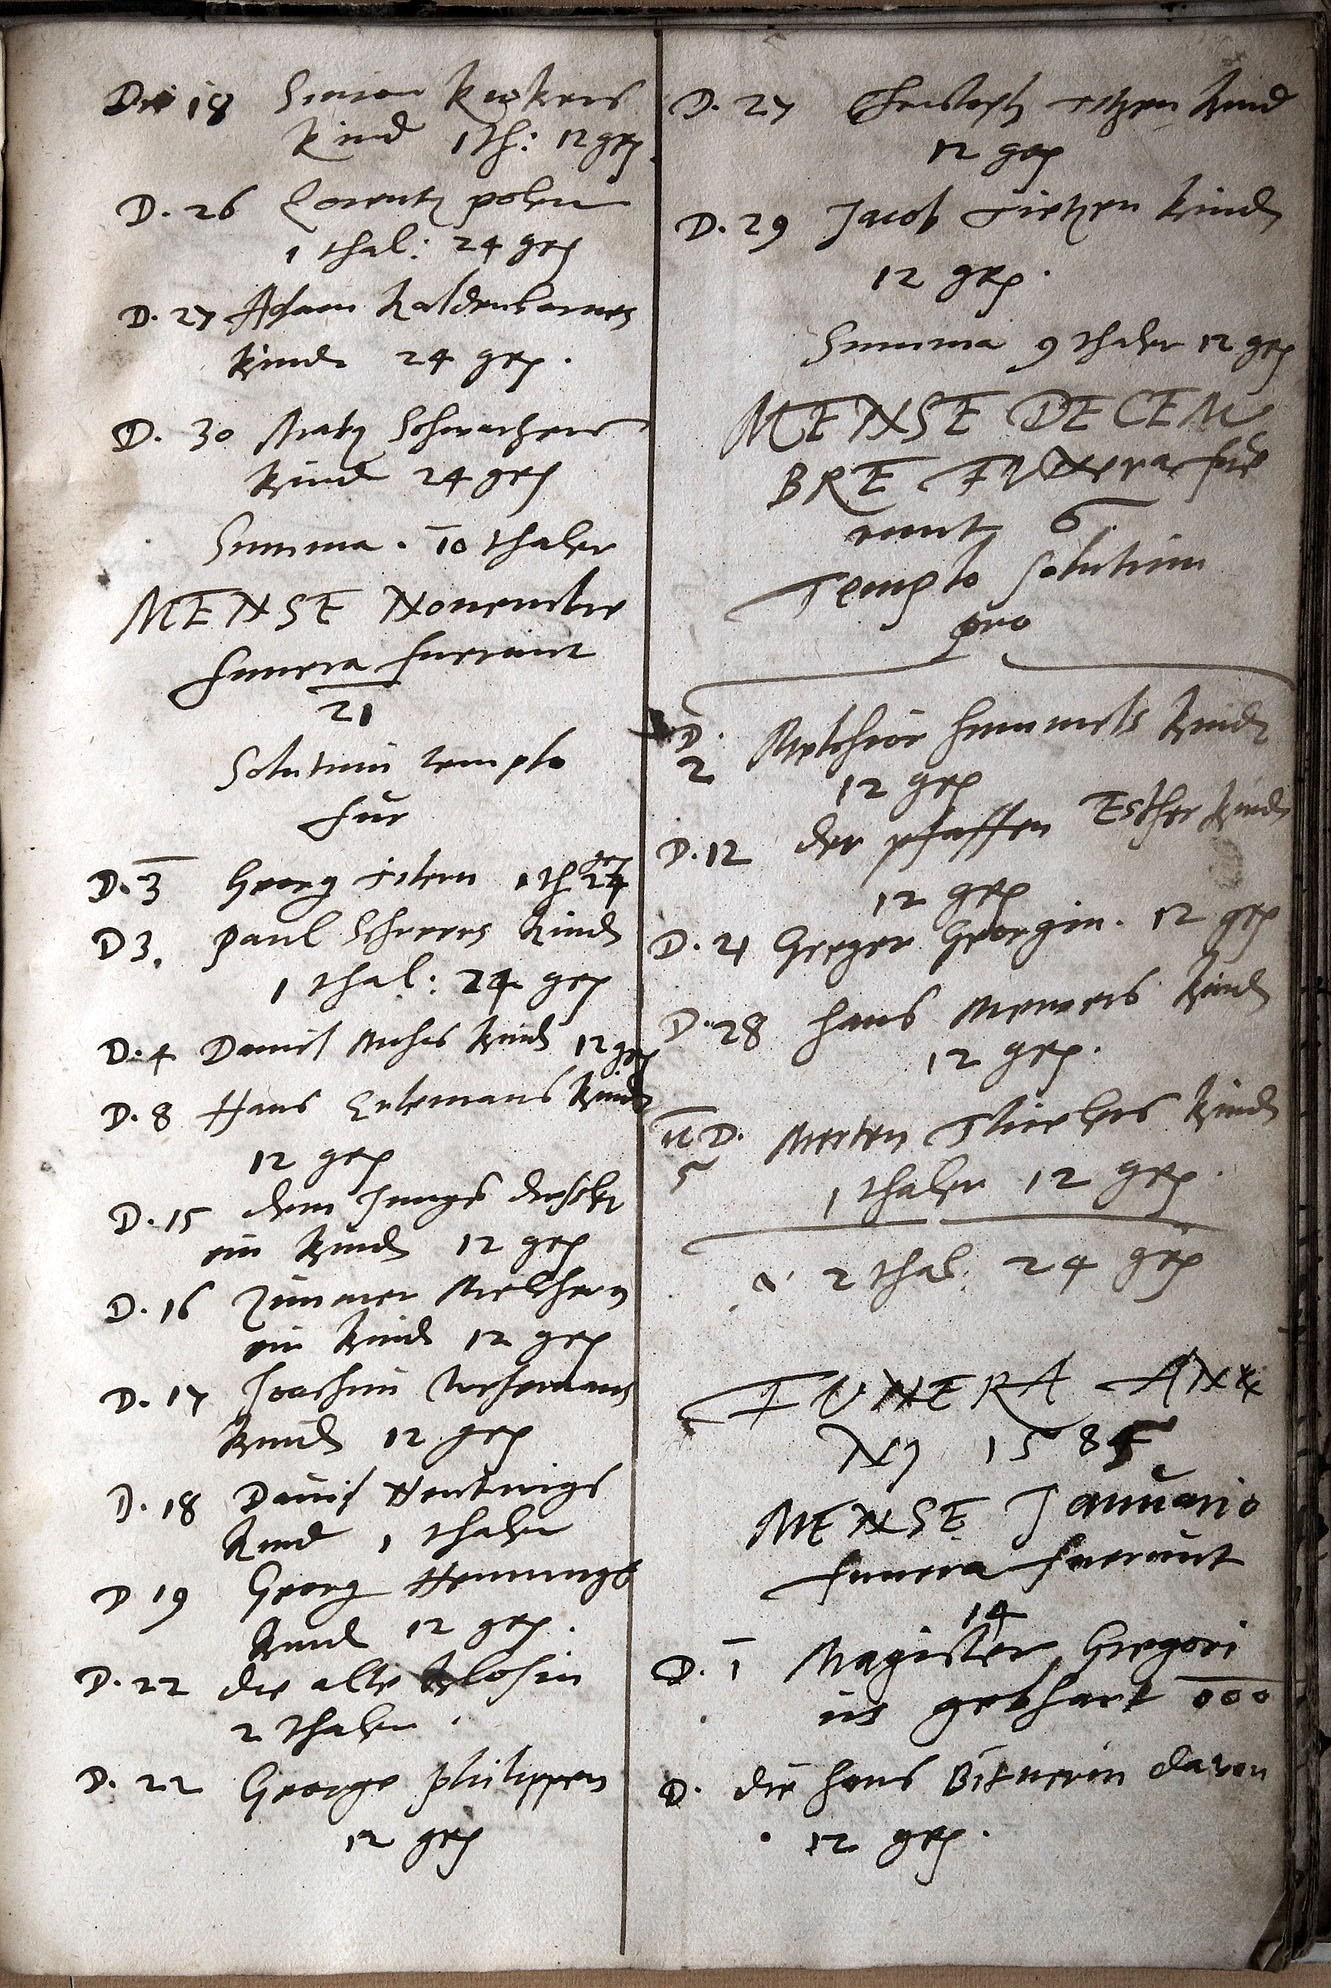 Die 18 Simon
Kind 1 th: 12 gr
D. 26 Lorentz polen
1 thal: 24 gr
D. 27 Adam Kaldenbornes
Kindt 24 gr.
D. 30 Matz Schwartzers
Kindt 24 gr
Summa . 10 thaler
MENSE Nouembre
funera fuerunt
21
Solutum templo
für
D. 3 Georg 1 th 24 gr
D 3. Paul Scherers Kindt
1 thal: 24 gr
D. 4 Daniel Kindt 12 gr
D. 8 Hans Kindt
12 gr
D. 15 dem Junge
ein Kindt 12 gr
D. 16 Zimmer Melchern
ein Kindt 12 gr
D. 17 Joachim
Kindt 12 gr
D. 18 Dauid Hentwigs
Kind 1 thaler
D 19 Georg Hennings
Kind 12 gr.
D. 22 die alte
2 thaler .
D. 22 George philippen
12 gr
D. 27 Christoph Kind
12 gr
D. 29 Jacob Tietzen Kindt
12 gr.
Summa 9 thaler 12 gr
MENSE DECEM
BRE FUNera fue
runt 6.
Templo Solutum
pro
D. 2 Melchior hummels Kindt
12 gr
D. 12 der pfaffen Esther Kindt
12 gr
D. 21 Greger Georgin. 12 gr
D. 28 hans Kindt
12 gr.
D. 5 Merten Kindt
1 thaler 12 gr.
2 thal: 24 gr
FVNERA AN
NJ 1585
MENSE Januario
funera fuerunt
14
D. 1 Magister Gregori
us gebhart 000
D. die hans Bitnerin dauon
12 gr.